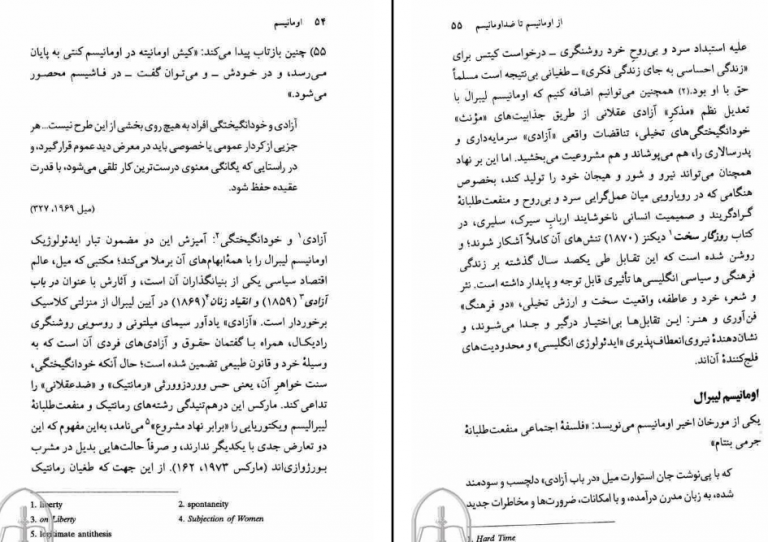 ۵۴ اومانیسم
۵۵) چنین بازتاب پیدا می‌کند: «کیش اومانیته در اومانیسم کنتی به پایان
می‌رسد، و در خودش ــ و می‌توان گفت ــ در فاشیسم محصور
می‌شود.»
آزادی و خودانگیختگی افراد به هیچ روی بخشی از این طرح نیست... هر
جزیی از کردار عمومی یا خصوصی باید در معرض دید عموم قرار گیرد، و
در راستایی که یگانگی معنوی درست‌ترین کار تلقی می‌شود، با قدرت
عقیده حفظ شود.
(میل ۱۹۶۹، ۳۲۷)
آزادی۱ و خودانگیختگی۲: آمیزش این دو مضمون تبار ایدئولوژیک
اومانیسم لیبرال را با همهٔ ابهام‌های آن برملا می‌کند؛ مکتبی که میل، عالم
اقتصاد سیاسی یکی از بنیانگذاران آن است، و آثارش با عنوان در باب
آزادی۳ (۱۸۵۹) و انقیاد زنان۴ (۱۸۶۹) در آیین لیبرال از منزلتی کلاسیک
برخوردار است. «آزادی» یادآور سیمای میلتونی و روسویی روشنگری
رادیکال، همراه با گفتمان حقوق و آزادی‌های فردی آن است که به
وسیلهٔ خرد و قانون طبیعی تضمین شده است؛ حال آنکه خودانگیختگی،
سنت خواهرِ آن، یعنی حس ووردزوورثی «رمانتیک» و «ضدعقلانی» را
تداعی کند. مارکس این درهم‌تنیدگی رشته‌های رمانتیک و منفعت‌طلبانهٔ
لیبرالیسم ویکتوریایی را «برابر نهاد مشروع»۵ می‌نامد، به‌این مفهوم که این
دو تعارض جدی با یکدیگر ندارند، و صرفاً حالت‌هایی بدیل در مشرب
بورژوازی‌اند (مارکس ۱۹۷۳، ۱۶۲). از این جهت که طغیان رمانتیک
1. liberty 2. spontaneity
3. on Liberty 4. Subjection of Women
5. legitimate antithesis
از اومانیسم تا ضداومانیسم ۵۵
علیه استبداد سرد و بی‌روح خرد روشنگری ــ درخواست کیتس برای
«زندگی احساسی به جای زندگی فکری» ــ طغیانی بی‌نتیجه است مسلماً
حق با او بود.(۲) همچنین می‌توانیم اضافه کنیم که اومانیسم لیبرال با
تعدیل نظم «مذکرِ» آزادی عقلانی از طریق جذابیت‌های «مؤنث»
خودانگیختگی‌های تخیلی، تناقضات واقعی «آزادی» سرمایه‌داری و
پدرسالاری را، هم می‌پوشاند و هم مشروعیت می‌بخشید. اما این بر نهاد
همچنان می‌تواند نیرو و شور و هیجان خود را تولید کند، بخصوص
هنگامی که در رویارویی میان عمل‌گرایی سرد و بی‌روح و منفعت‌طلبانهٔ
گرادگریند و صمیمیت انسانی ناخوشایند اربابِ سیرک، سلیری، در
کتاب روزگار سخت۱ دیکنز (۱۸۷۰) تنش‌های آن کاملاً آشکار شوند؛ و
روشن شده است که این تقابل طی یکصد سال گذشته بر زندگی
فرهنگی و سیاسی انگلیسی‌ها تأثیری قابل توجه و پایدار داشته است. نثر
و شعر، خرد و عاطفه، واقعیت سخت و ارزش تخیلی، «دو فرهنگ»
فن‌آوری و هنر: این تقابل‌ها بی‌اختیار درگیر و جدا می‌شوند، و
نشان‌دهندهٔ نیروی انعطاف‌پذیری «ایدئولوژی انگلیسی» و محدودیت‌های
فلج‌کنندهٔ آن‌اند.
اومانیسم لیبرال
یکی از مورخان اخیر اومانیسم می‌نویسد: «فلسفهٔ اجتماعی منفعت‌طلبانهٔ
جرمی بنتام»
که با پی‌نوشت جان استوارت میل «در باب آزادی» دلچسب و سودمند
شده، به زبان مدرن درآمده، و با امکانات، ضرورت‌ها و مخاطرات جدید
1. Hard Time